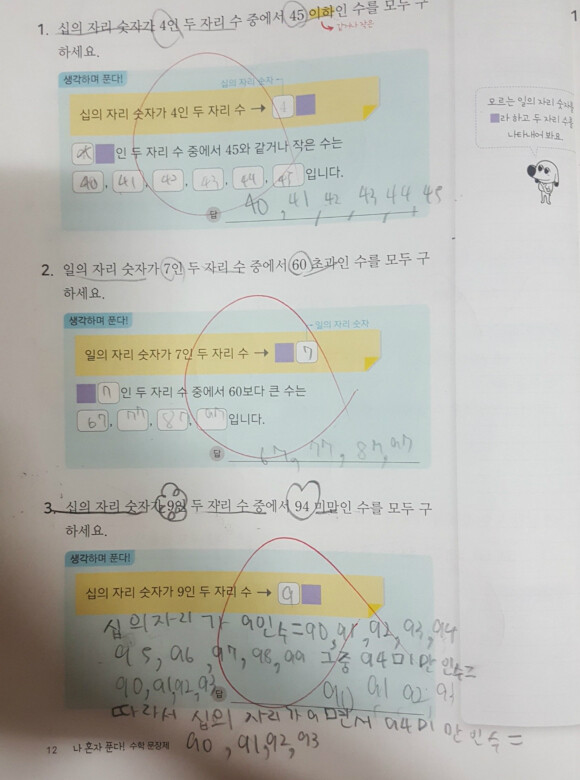 1. 십의 자리 숫자가 4인 두 자리 수 중에서 45 이하인 수를 모두 구
같거나 작은
하세요.
생각하며 푼다!
십의 자리 숫자
십의 자리 숫자가 4인 두 자리 수 → 4
인 두 자리 수 중에서 45와 같거나 작은 수는
40, 41, 42, 43, 44, 45 입니다.
답 40, 41, 42, 43, 44, 45
모르는 일의 자리 숫자를
라 하고 두 자리 수를
나타내어 봐요.
2. 일의 자리 숫자가 7인 두 자리 수 중에서 60 초과인 수를 모두 구
하세요.
생각하며 푼다!
일의 자리 숫자
일의 자리 숫자가 7인 두 자리 수 → 7
7 인 두 자리 수 중에서 60보다 큰 수는
67, 77, 87, 97 입니다.
답 67, 77, 87, 97
3. 십의 자리 숫자가 9인 두 자리 수 중에서 94 미만인 수를 모두 구
하세요.
생각하며 푼다!
십의 자리 숫자가 9인 두 자리 수 → 9
십의자리가 9인수=90,91,92,93,94
95, 96, 97, 98, 99 그중 94미만인수=
90,91,92,93
답 90 91 92 93
따라서 십의 자리가 9면서 94미만인수=
90, 91,92,93
12 나 혼자 푼다! 수학 문장제
1